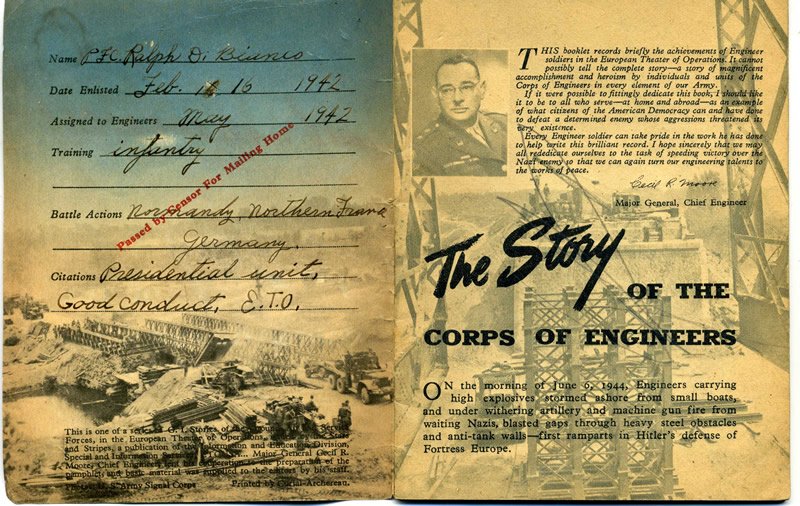 Name PFC. Ralph D. Bianco
Date Enlisted Feb. 16 1942
Assigned to Engineers May 1942
Training infantry
Passed by Censor For Mailing Home
Battle Actions Normandy, Northern France
Germany.
Citations Presidential unit,
Good conduct, E.T.O.
This is one of a series of G.I. Stories of the Service
Forces, in the European Theater of Operations,
and Stripes, a publication of the Information and Education Division,
Special and Information Major General Cecil R.
Moore, Chief Engineer, lent his cooperation to the preparation of the
pamphlet, and basic material was supplied to the editors by his staff.
Photos: U. S. Army Signal Corps Printed by Curial-Archereau.
THIS booklet records briefly the achievements of Engineer
soldiers in the European Theater of Operations. It cannot
possibly tell the complete story—a story of magnificent
accomplishment and heroism by individuals and units of the
Corps of Engineers in every element of our Army.
If it were possible to fittingly dedicate this book, I should like
it to be to all who serve—at home and abroad—as an example
of what citizens of the American Democracy can and have done
to defeat a determined enemy whose aggressions threatened its
very existence.
Every Engineer soldier can take pride in the work he has done
to help write this brilliant record. I hope sincerely that we may
all rededicate ourselves to the task of speeding victory over the
Nazi enemy so that we can again turn our engineering talents to
the works of peace.
Cecil R. Moore
Major General, Chief Engineer
The Story
OF THE
CORPS OF ENGINEERS
ON the morning of June 6, 1944, Engineers carrying
high explosives stormed ashore from small boats,
and under withering artillery and machine gun fire from
waiting Nazis, blasted gaps through heavy steel obstacles
and anti-tank walls—first ramparts in Hitler's defense of
Fortress Europe.